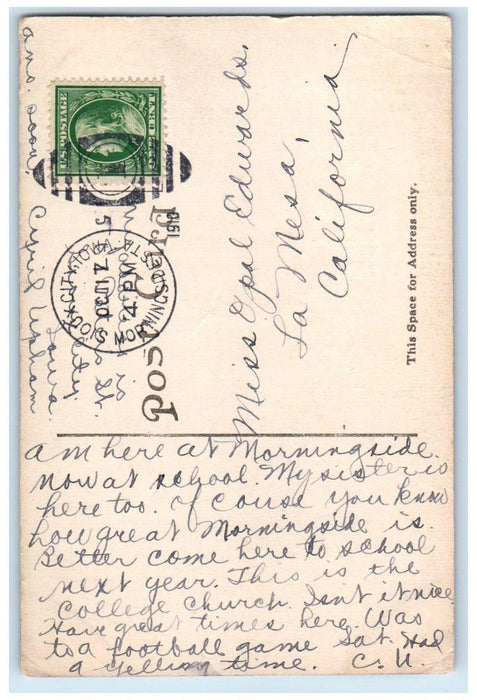 am here at Morningside
now at school. My sister is
here too. Of couse you know
how great Morningside is.
Better come here to school
next year. This is the
College Church. Isnt it nice.
Have great times here. Was
to a football game Sat. Had
a yelling time. C. U.
Miss Opal Edwards,
La Mesa,
California.
This Space for Address only.
Post Card
SIOUX CITY, IOWA
MORNINGSIDE STA.
4 PM
1910
U.S. POSTAGE
ans. soon,
Cyril Upham
Iowa
City
St.